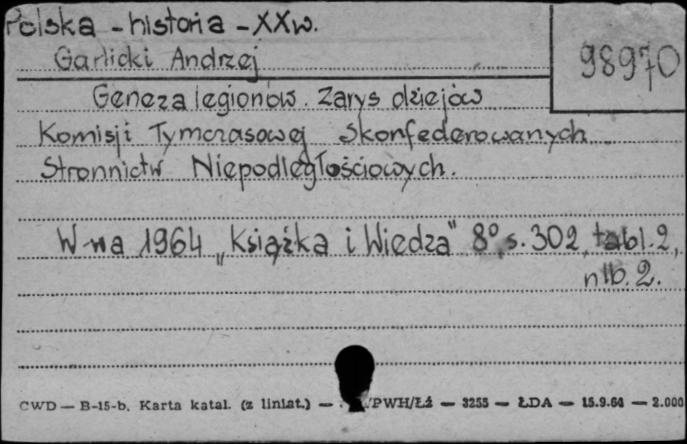 Polska - historia - XXw.
98970
Garlicki Andrzej
Geneza legionów. Zarys dziejów
Komisji Tymczasowej Skonfederowanych
Stronnictw Niepodległościowych.
W-wa 1964 „Książka i Wiedza" 8°, s. 302, tabl. 2,
nlb. 2.
CWD — B-15-b. Karta katal. (z liniat.) — /PWH/Łź — 3255 — ŁDA — 15.9.64 — 2.000